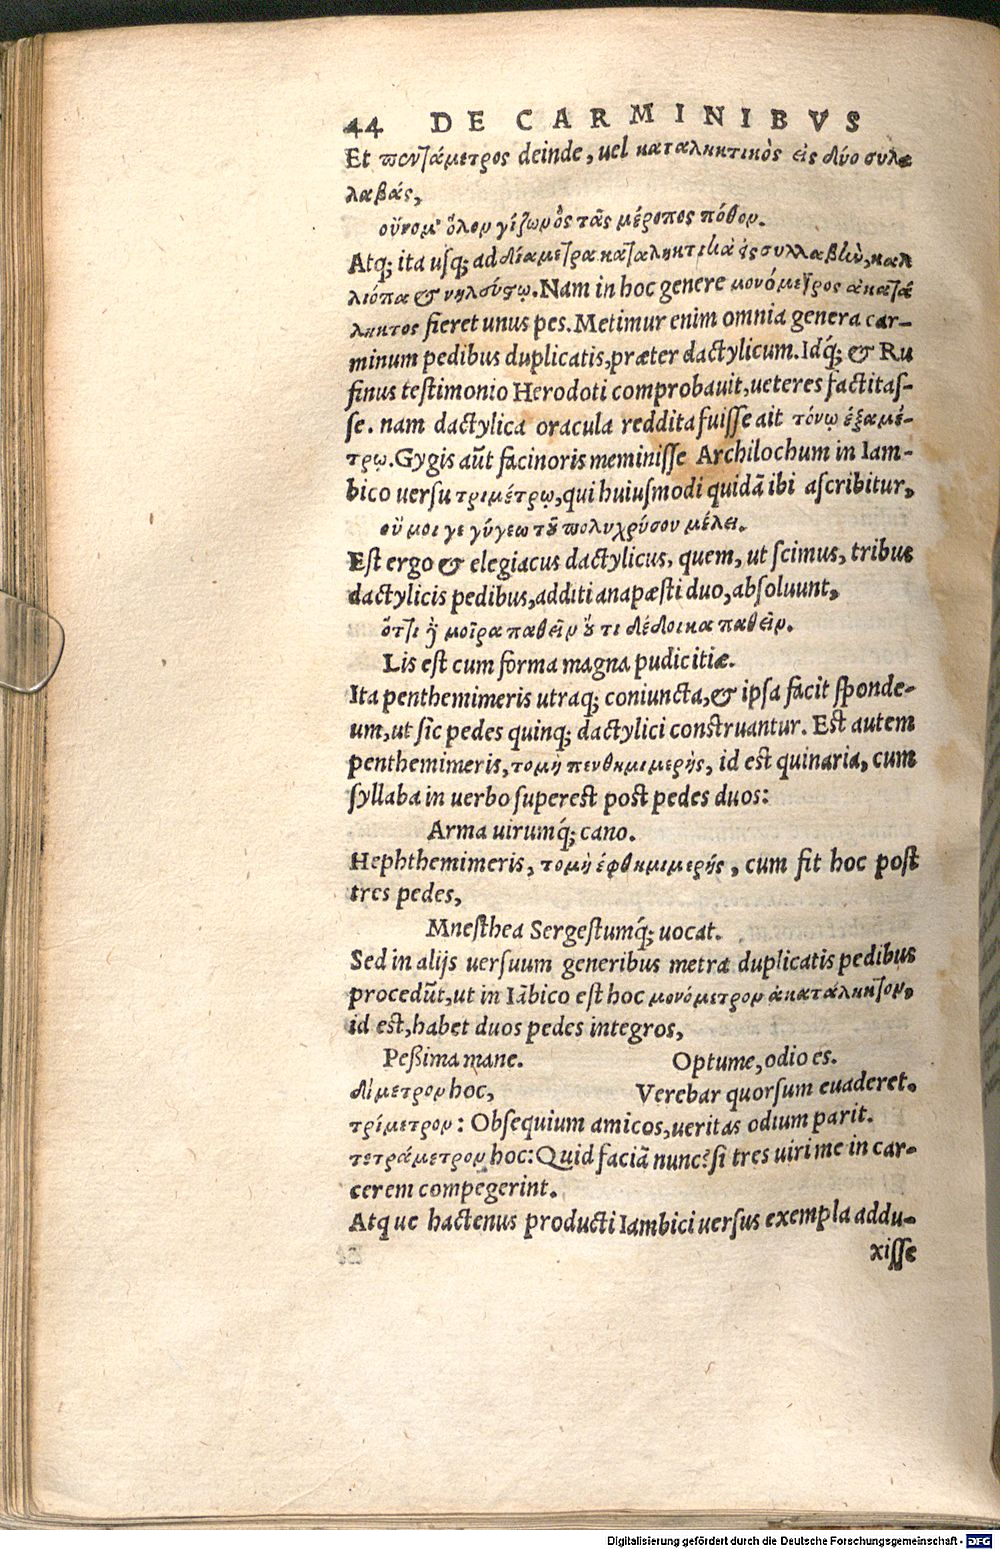 44 DE CARMINIBVS
Et πεντάμετρος deinde, uel καταληκτικὸς εἰς δύο συλ-
λαβάς,
οὔνομ' ὅλον
Atq; ita usq; ad δίαμετρα καταληκτικὰ
λιόπα & . Nam in hoc genere μονόμετρος ἀκατά
ληκτος fieret unus pes. Metimur enim omnia genera car-
minum pedibus duplicatis, præter dactylicum. Idq́; & Ru
finus testimonio Herodoti comprobauit, ueteres factitas-
se. nam dactylica oracula reddita fuisse ait τόνῳ ἑξαμέ-
τρῳ. Gygis aũt facinoris meminisse Archilochum in Iam-
bico uersu τριμέτρῳ, qui huiusmodi quidã ibi ascribitur,
οὔ μοι γε γύγεω τοῦ πολυχρύσου μέλει.
Est ergo & elegiacus dactylicus, quem, ut scimus, tribus
dactylicis pedibus, additi anapæsti duo, absoluunt,
ὅττι ἢ μοῖρα παθεῖν οὔ τι δέδοικα παθεῖν.
Lis est cum forma magna pudicitiæ.
Ita penthemimeris utraq; coniuncta, & ipsa facit sponde-
um, ut sic pedes quinq; dactylici construantur. Est autem
penthemimeris, τομὴ πενθημιμερὴς, id est quinaria, cum
syllaba in uerbo superest post pedes duos:
Arma uirumq́; cano.
Hephthemimeris, τομὴ ἐφθημιμερὴς, cum fit hoc post
tres pedes,
Mnesthea Sergestumq́; uocat.
Sed in alijs uersuum generibus metra duplicatis pedibus
procedũt, ut in Iãbico est hoc μονόμετρον ἀκατάληκτον,
id est, habet duos pedes integros,
Peßima mane. Optume, odio es.
δίμετρον hoc, Verebar quorsum euaderet.
τρίμετρον: Obsequium amicos, ueritas odium parit.
τετράμετρον hoc: Quid faciã nunc? si tres uiri me in car-
cerem compegerint.
Atque hactenus producti Iambici uersus exempla addu-
xisse
Digitalisierung gefördert durch die Deutsche Forschungsgemeinschaft - DFG